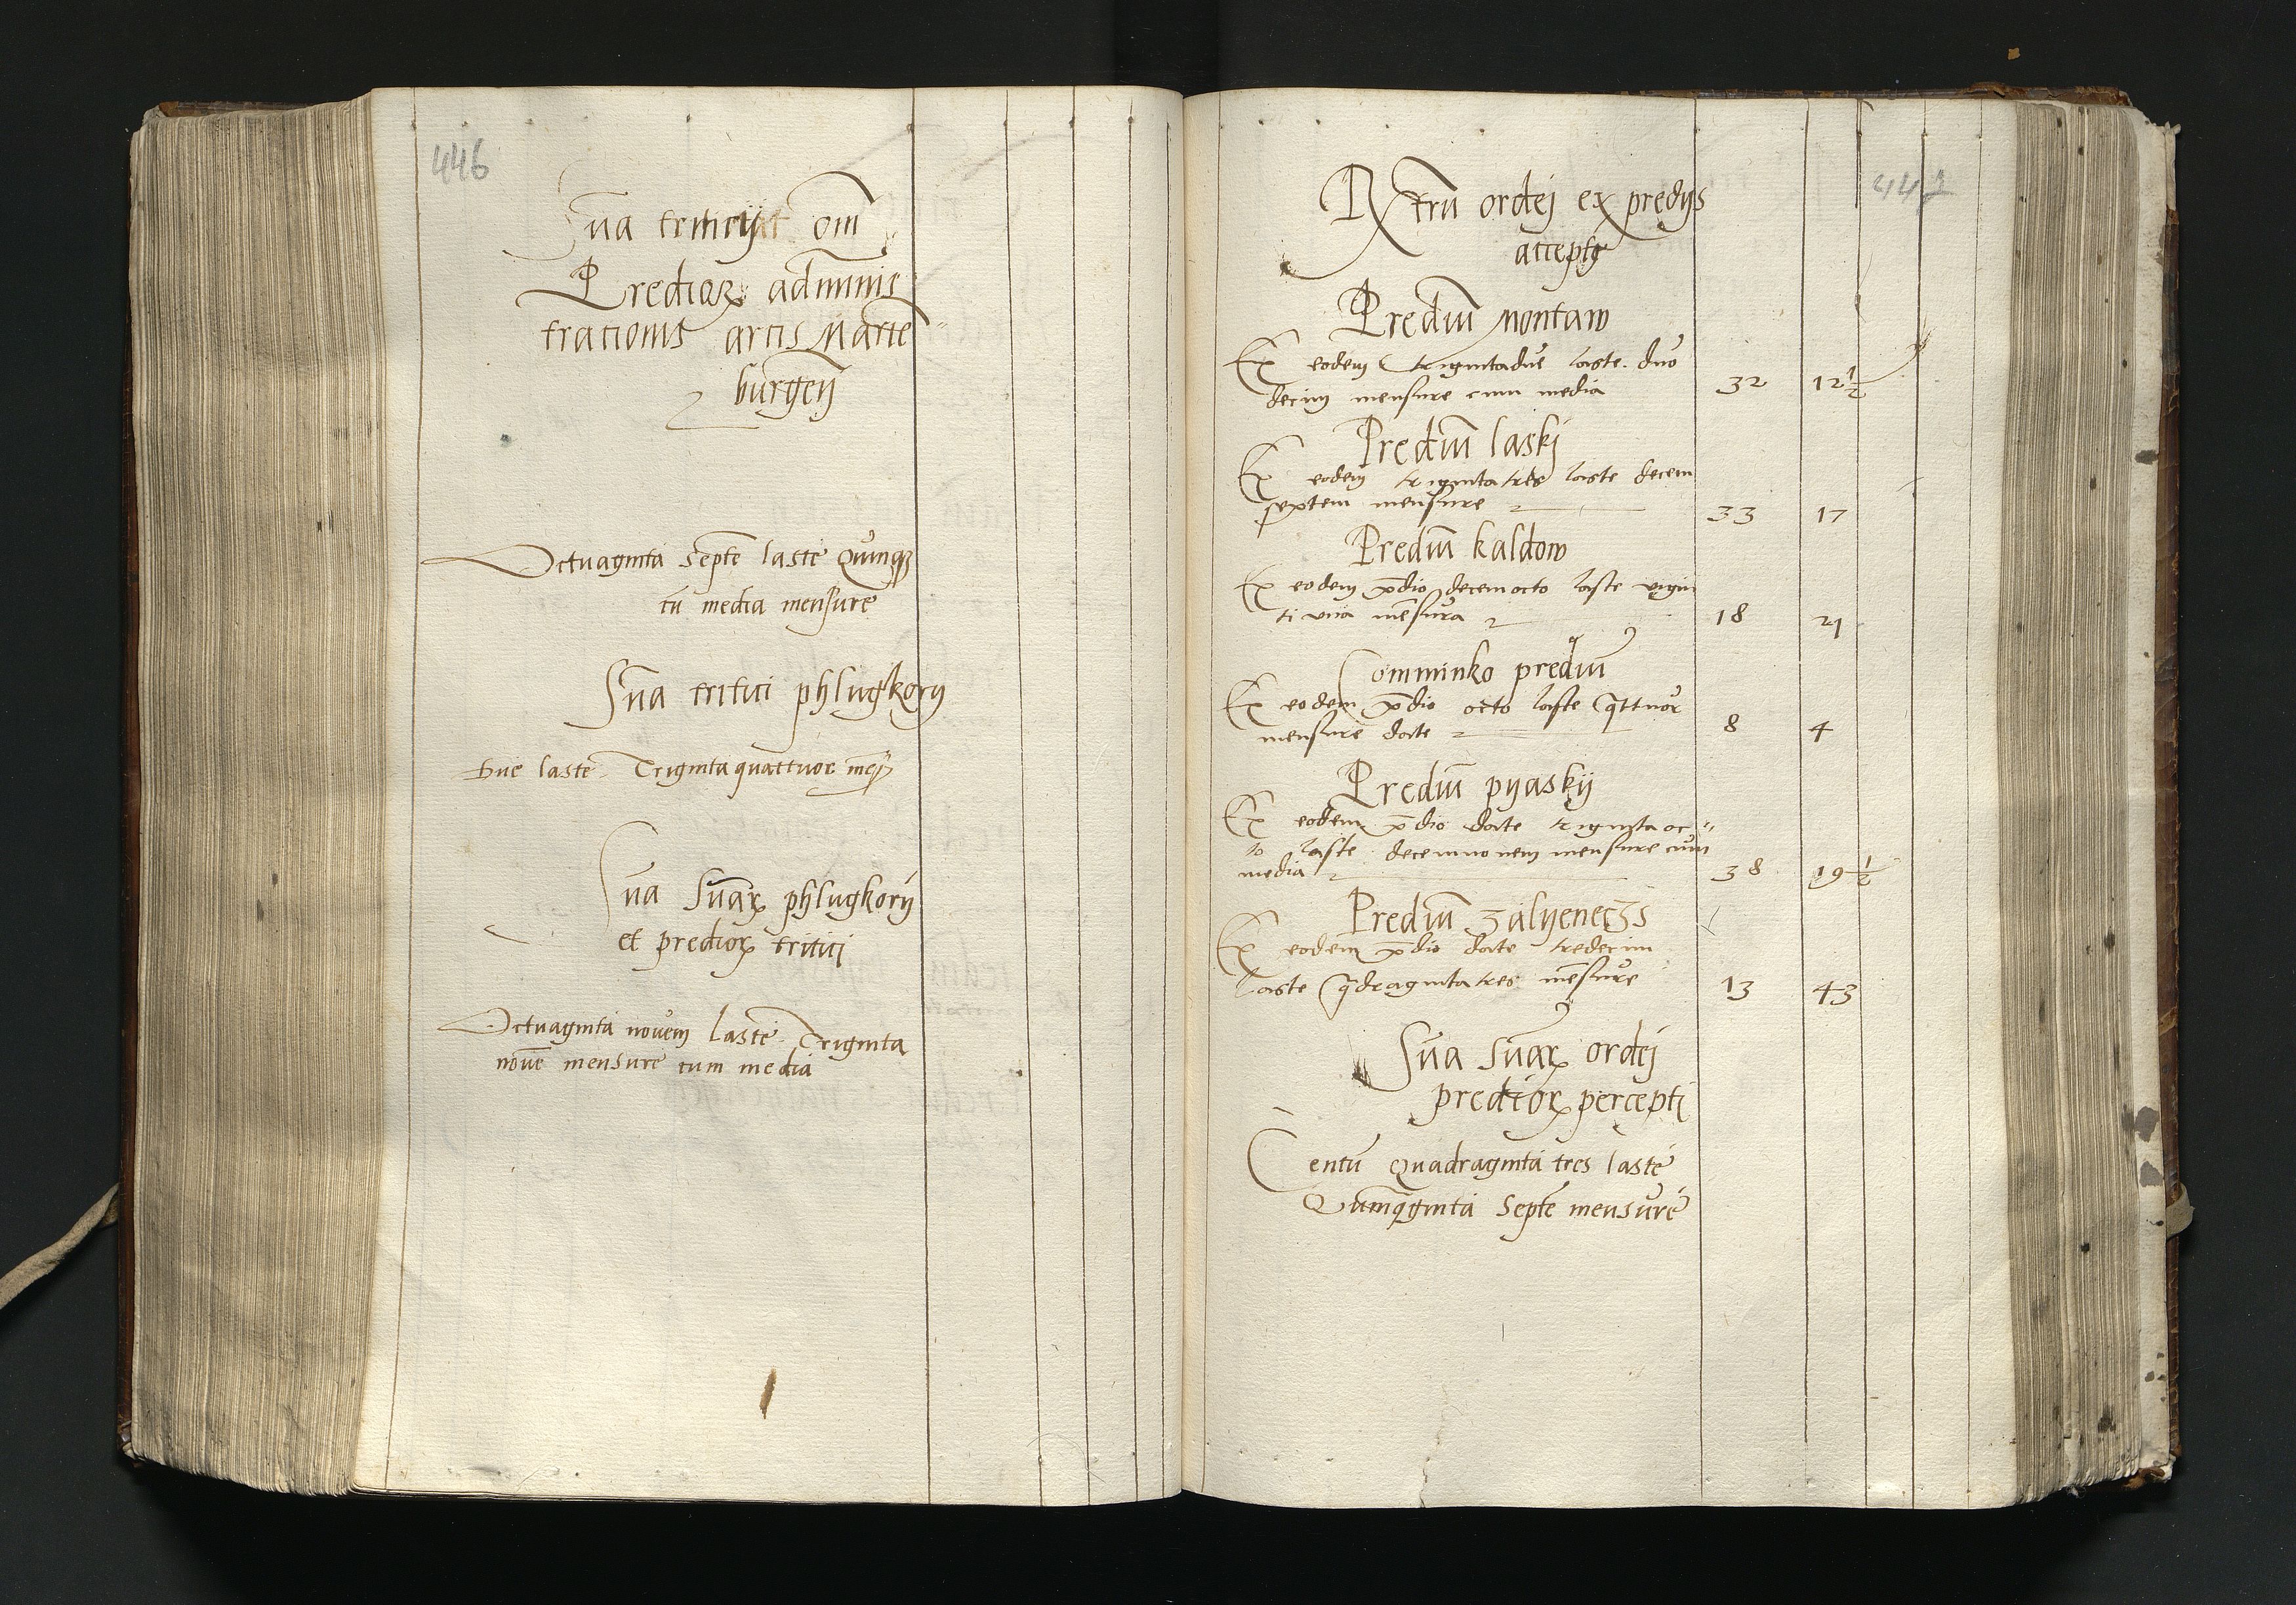 446
Sũa tritici oĩm
Predioꝝ adminis
trationis arcis Marie
burgeñ
Octuaginta septẽ laste Quinqꝫ
cũ media mensure
Sũa tritici phlugkorij
Due laste Triginta quattuor meñs
Sũa Sũaꝝ phlugkorij
et predioꝝ tritici
Octuaginta novem laste Triginta
novẽ mensure cum media
447
ordej ex predijs
accepte
Prediũ Montaw
Ex eodem trigintadue laste duo
decim mensure cum media 32 12½
Prediũ laskj
Ex eodem triginta tres laste decem
septem mensure 33 17
Prediũ kaldow
Ex eodem p̃dio decemocto laste vigin
ti una mẽsura 18 21
Comminko prediũ
Ex eodem p̃dio octo laste q̃ttuor
mensure date 8 4
Prediũ pyaskij
Ex eodem p̃dio date triginta oc
to laste decemnovem mensure cum
media 38 19½
Prediũ zalyeneczs
Ex eodem p̃dio date tredecim
laste q̃draginta tres mẽsure 13 43
Sũa Sũaꝝ ordej
predioꝝ percepti
Centũ Quadraginta tres laste
Quinq̃ginta Septẽ mensure